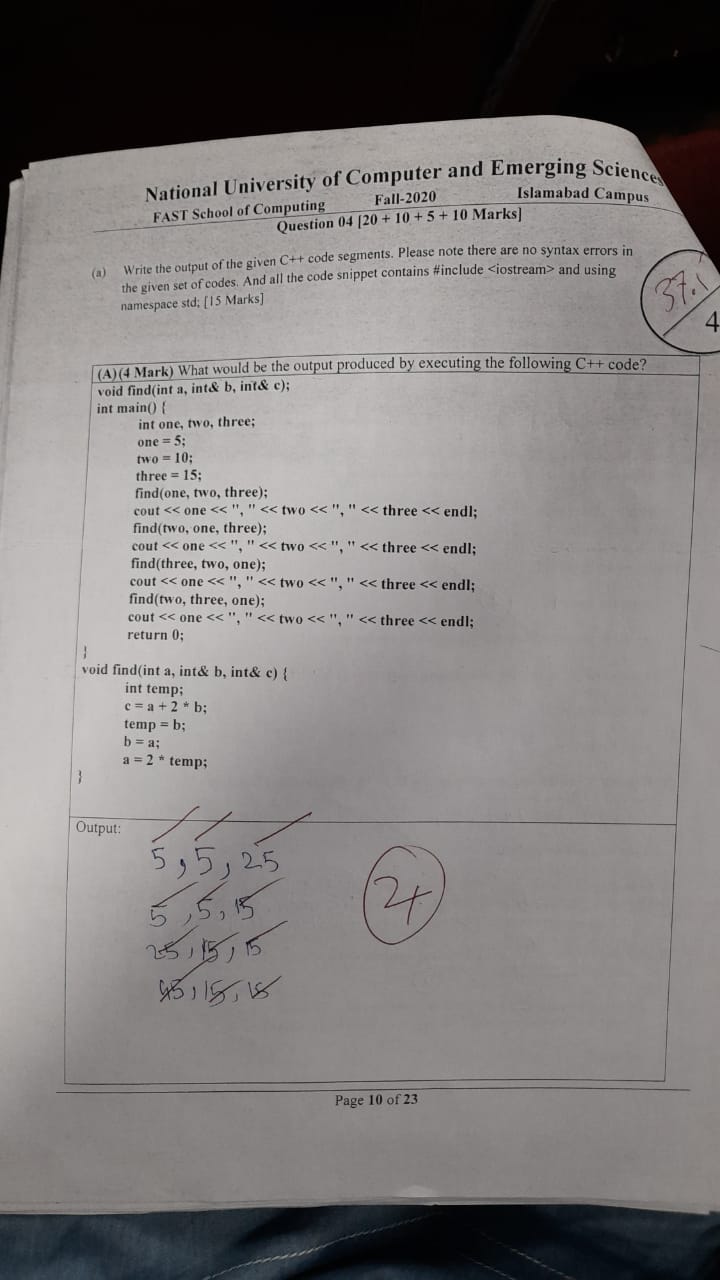 National University of Computer and Emerging Sciences
FAST School of Computing Fall-2020 Islamabad Campus
Question 04 [20 + 10 + 5 + 10 Marks]
(a) Write the output of the given C++ code segments. Please note there are no syntax errors in
the given set of codes. And all the code snippet contains #include <iostream> and using
namespace std; [15 Marks]
37.
4
(A)(4 Mark) What would be the output produced by executing the following C++ code?
void find(int a, int& b, int& c);
int main() {
int one, two, three;
one = 5;
two = 10;
three = 15;
find(one, two, three);
cout << one << ", " << two << ", " << three << endl;
find(two, one, three);
cout << one << ", " << two << ", " << three << endl;
find(three, two, one);
cout << one << ", " << two << ", " << three << endl;
find(two, three, one);
cout << one << ", " << two << ", " << three << endl;
return 0;
}
void find(int a, int& b, int& c) {
int temp;
c = a + 2 * b;
temp = b;
b = a;
a = 2 * temp;
}
Output:
5, 5, 25
5, 5, 15
25, 15, 15
45, 15, 15
Page 10 of 23